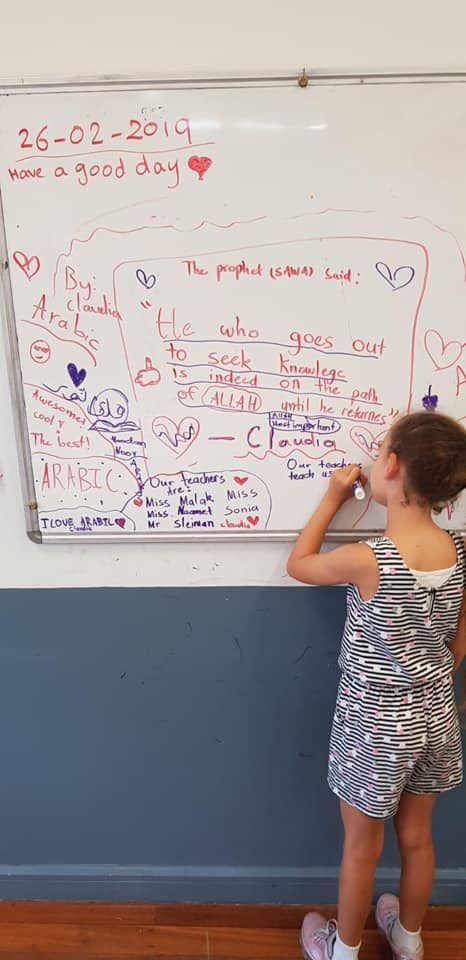 26-02-2019
Have a good day
By:
Claudia
Arabic
The prophet (SAWA) said:
"He who goes out
to seek knowlege
is indeed on the path
of ALLAH until he returnes"
ALLAH
Most important
— Claudia
Awesome!
cool &
The best!
ARABIC
I LOVE ARABIC
Claudia
Our teachers
Are:
Miss Malak
Miss Naamet
Mr Sleiman
Miss
Sonia
Claudia
Our teachers
teach us